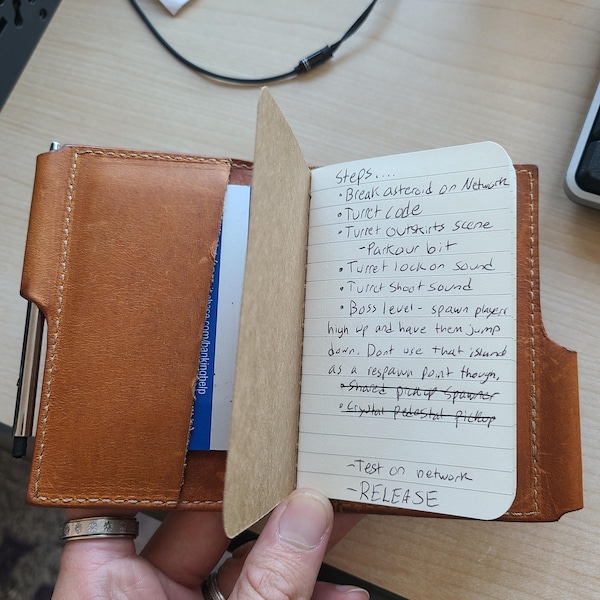 Steps....
• Break asteroid on Network
• Turret code
• Turret outskirts scene
- Parkour bit
• Turret lock on sound
• Turret shoot sound
• Boss level - spawn players
high up and have them jump
down. Dont use that island
as a respawn point though.
• Shared pickup spawner
• Crystal pedestal pickup
- Test on network
- RELEASE
.com/bankinghelp